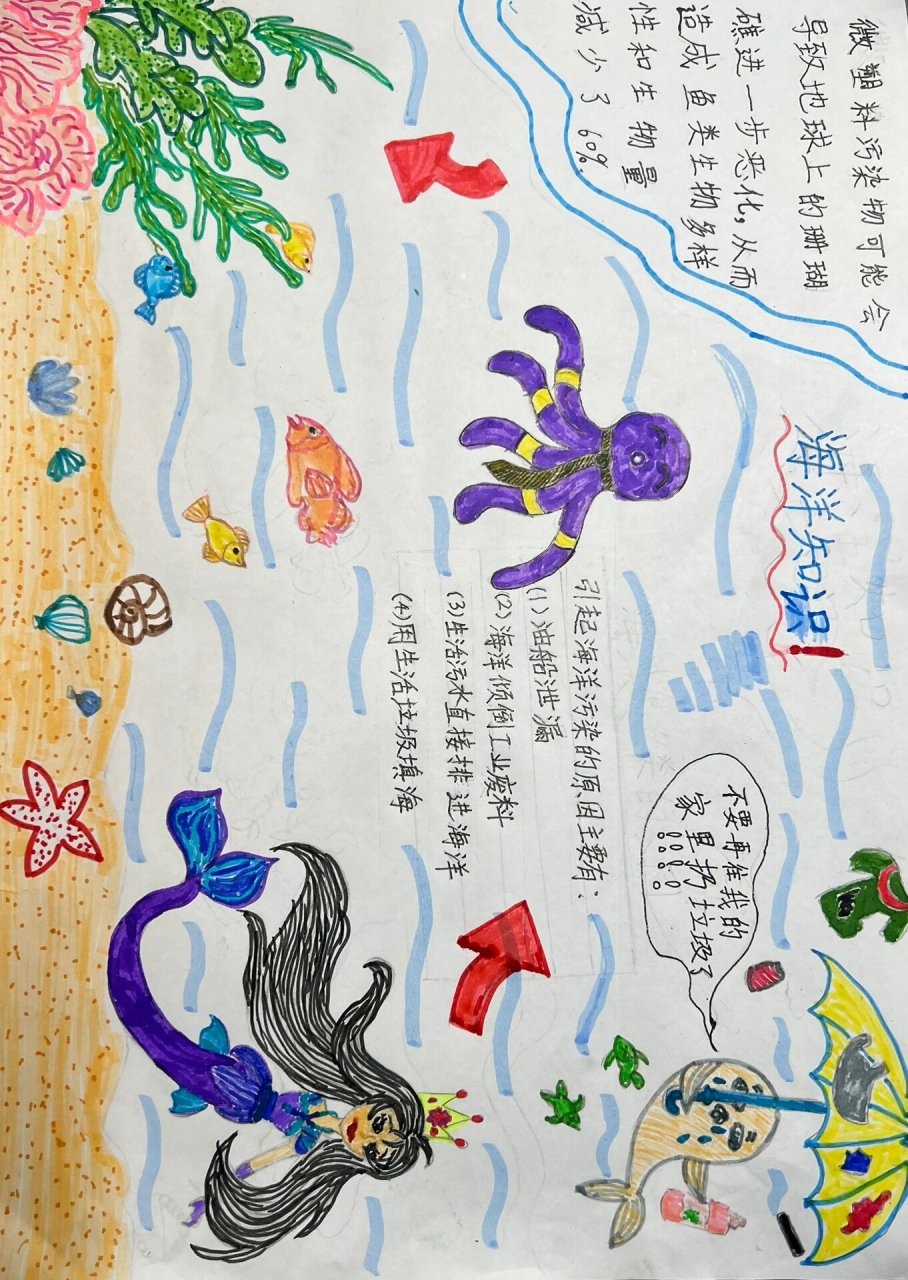 微塑料污染物可能会
导致地球上的珊瑚
礁进一步恶化，从而
造成鱼类生物多样
性和生物量
减少了60%.
海洋知识！
引起海洋污染的原因主要有：
(1)油船泄漏
(2)海洋倾倒工业废料
(3)生活污水直接排进海洋
(4)用生活垃圾填海
不要再往我的
家里扔垃圾了
!!!!!